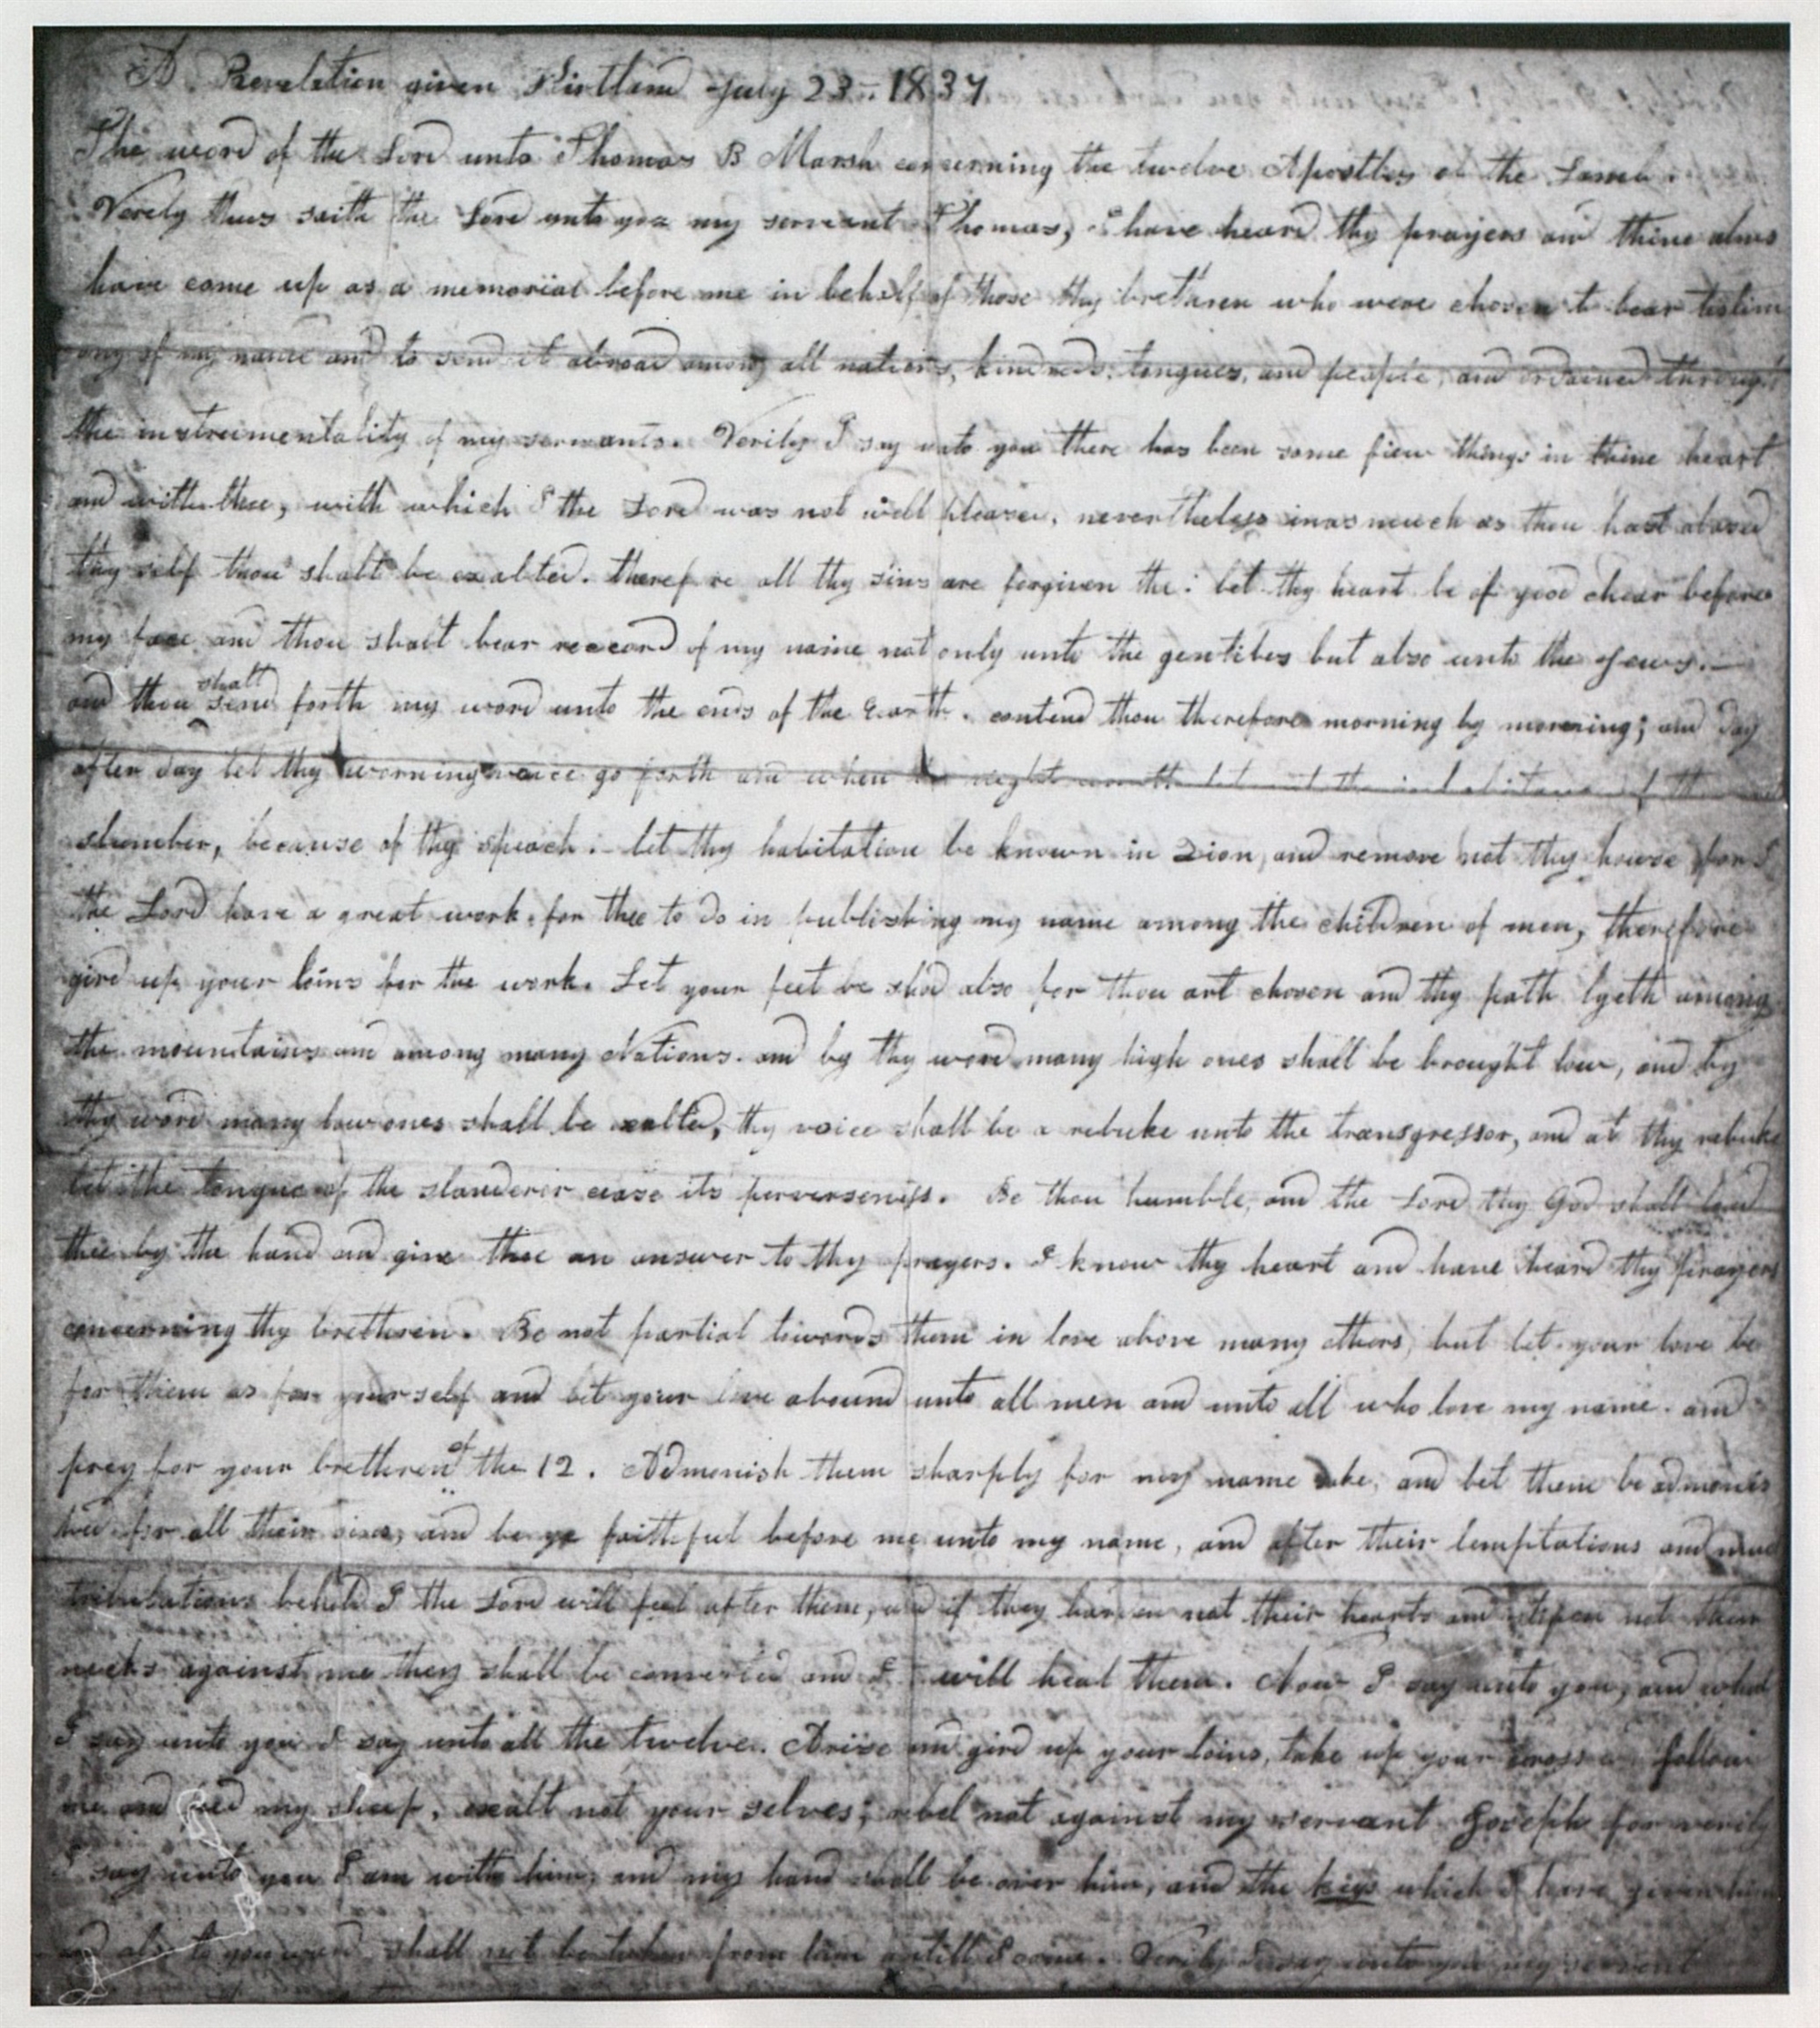 A Revelation given Kirtland July 23—. 1837
The word of the Lord unto Thomas B Marsh concerning the twelve Apostles of the Lamb.
Verely thus saith the Lord unto you my servant Thomas, I have heard thy prayers and thine alms
have come up as a memorial before me in behalf of those thy brethren who were chosen to bear testim
ony of my name and to send it abroad among all nations, kindreds, tongues, and people, and ordained through
the instrumentality of my servants. Verily I say unto you there has been some fiew things in thine heart
and with thee, with which I the Lord was not well pleased, nevertheless inasmuch as thou hast abased
thy self thou shalt be exalted. therefore all thy sins are forgiven the: let thy heart be of good chear before
my face and thou shalt bear reccord of my name not only unto the gentiles but also unto the Jews.—
and thou shalt send forth my word unto the ends of the Earth. contend thou therefore morning by morning; and day
after day let thy worning voice go forth and when the night cometh let not the inhabitance of the
slumber, because of thy speach:— let thy habitation be known in Zion, and remove not thy house for I
the Lord have a great work for thee to do in publishing my name among the children of men, therefore
gird up your loins for the work. Let your feet be shod also for thou art chosen and thy path lyeth among
the mountains and among many Nations. and by thy word many high ones shall be brought low, and by
thy word many low ones shall be exalted, thy voice shall be a rebuke unto the transgressor, and at thy rebuke
let the tongue of the slanderer cease its perverseness. Be thou humble, and the Lord thy God shall lead
thee by the hand and give thee an answer to thy prayers. I know thy heart and have heard thy prayers
concerning thy brethren. Be not partial towards them in love above many others, but let your love be
for them as for your self and let your love abound unto all men and unto all who love my name. and
pray for your brethren of the 12. Admonish them sharply for my name sake, and let them be admonis
hed for all their sins, and be ye faithful before me unto my name, and after their temptations and much
tribulations behold I the Lord will feel after them, and if they harden not their hearts and stifen not their
necks against me they shall be converted and I will heal them. Now I say unto you, and what
I say unto you I say unto all the twelve. Arise and gird up your loins, take up your cross follow
me and feed my sheep, exalt not your selves; rebel not against my servant Joseph for verily
I say unto you I am with him, and my hand shall be over him, and the keys which I have given him
and also to you ward shall not be taken from him untill I come. Verily I say unto you my servent